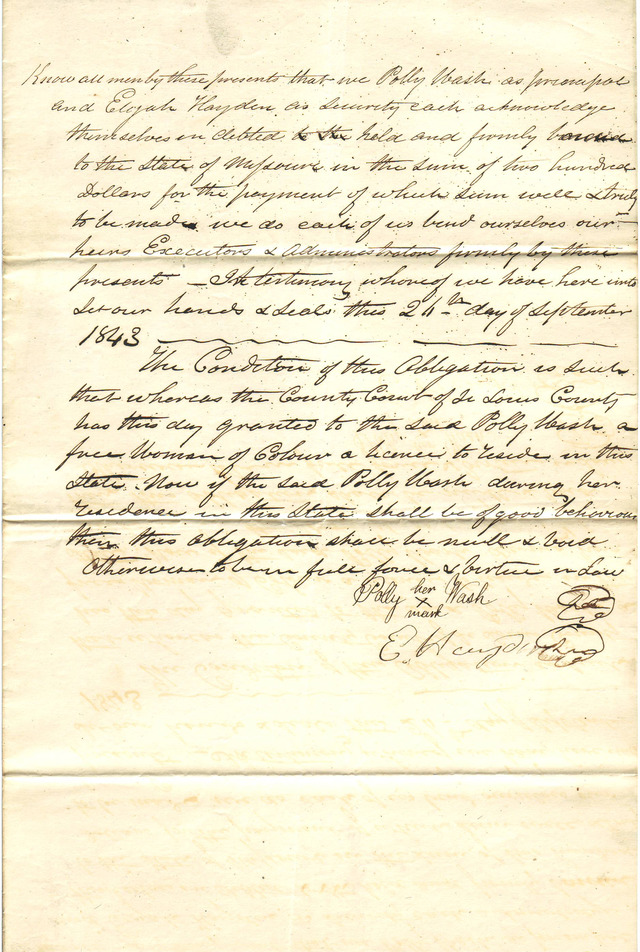 Know all men by these presents that we Polly Wash as principal
and Elijah Hayden as security each acknowledge
themselves in debted held and firmly bound
to the State of Missouri in the sum of two hundred
Dollars for the payment of which sum well & truly
to be made we do each of us bind ourselves our
heirs Executors & administrators firmly by these
presents – In testimony whereof we have here unto
Set our hands & Seals this day of September
1843
The Condition of this Obligation is such
that whereas the County Court of St Louis County
has this day granted to the said Polly Wash a
free Woman of Colour a licence to reside in this
State. Now if the said Polly Wash during her
residence in this State shall be of good behaviour
then this obligation shall be null & void
Otherwise to be in full force & virtue in Law
Polly her Wash
x
mark
E. Hayden